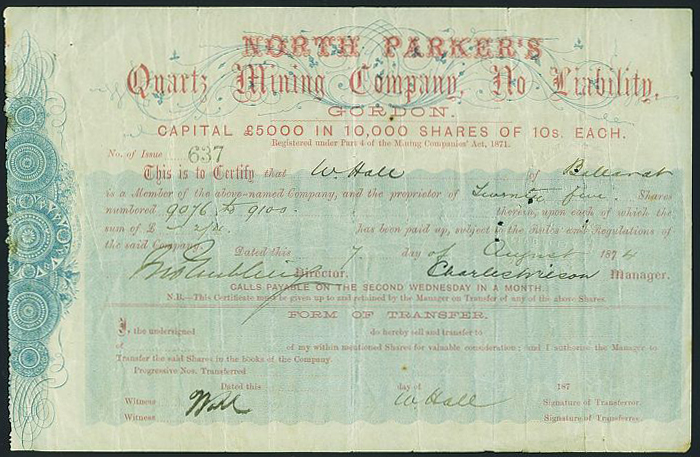 NORTH PARKER'S
Quartz Mining Company, No Liability,
GORDON.
CAPITAL £5000 IN 10,000 SHARES OF 10s. EACH.
Registered under Part 4 of the Mining Companies' Act, 1871.
No. of Issue 637
This is to Certify that W Hall of Ballarat
is a Member of the above-named Company, and the proprietor of Twenty five Shares
numbered 9076 to 9100 therein, upon each of which the
sum of £ has been paid up, subject to the Rules and Regulations of
the said Company. Dated this 7 day of August 1874
Director. Charles Wilson Manager.
CALLS PAYABLE ON THE SECOND WEDNESDAY IN A MONTH.
N.B.—This Certificate must be given up to and retained by the Manager on Transfer of any of the above Shares.
FORM OF TRANSFER.
I, the undersigned do hereby sell and transfer to
of of my within mentioned Shares for valuable consideration; and I authorise the Manager to
Transfer the said Shares in the books of the Company.
Progressive Nos. Transferred
Dated this day of 187
Witness W. Hall Signature of Transferror.
Witness Signature of Transferree.